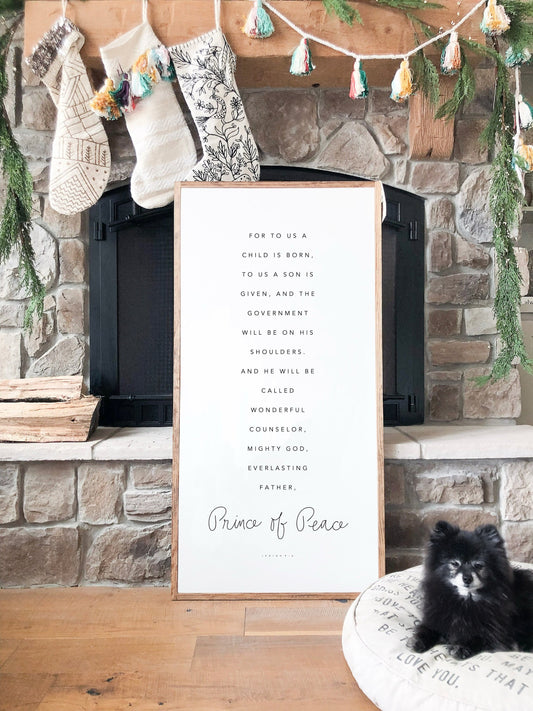 FOR TO US A
CHILD IS BORN,
TO US A SON IS
GIVEN, AND THE
GOVERNMENT
WILL BE ON HIS
SHOULDERS.
AND HE WILL BE
CALLED
WONDERFUL
COUNSELOR,
MIGHTY GOD,
EVERLASTING
FATHER,
Prince of Peace
ISAIAH 9:6
LOVE YOU.